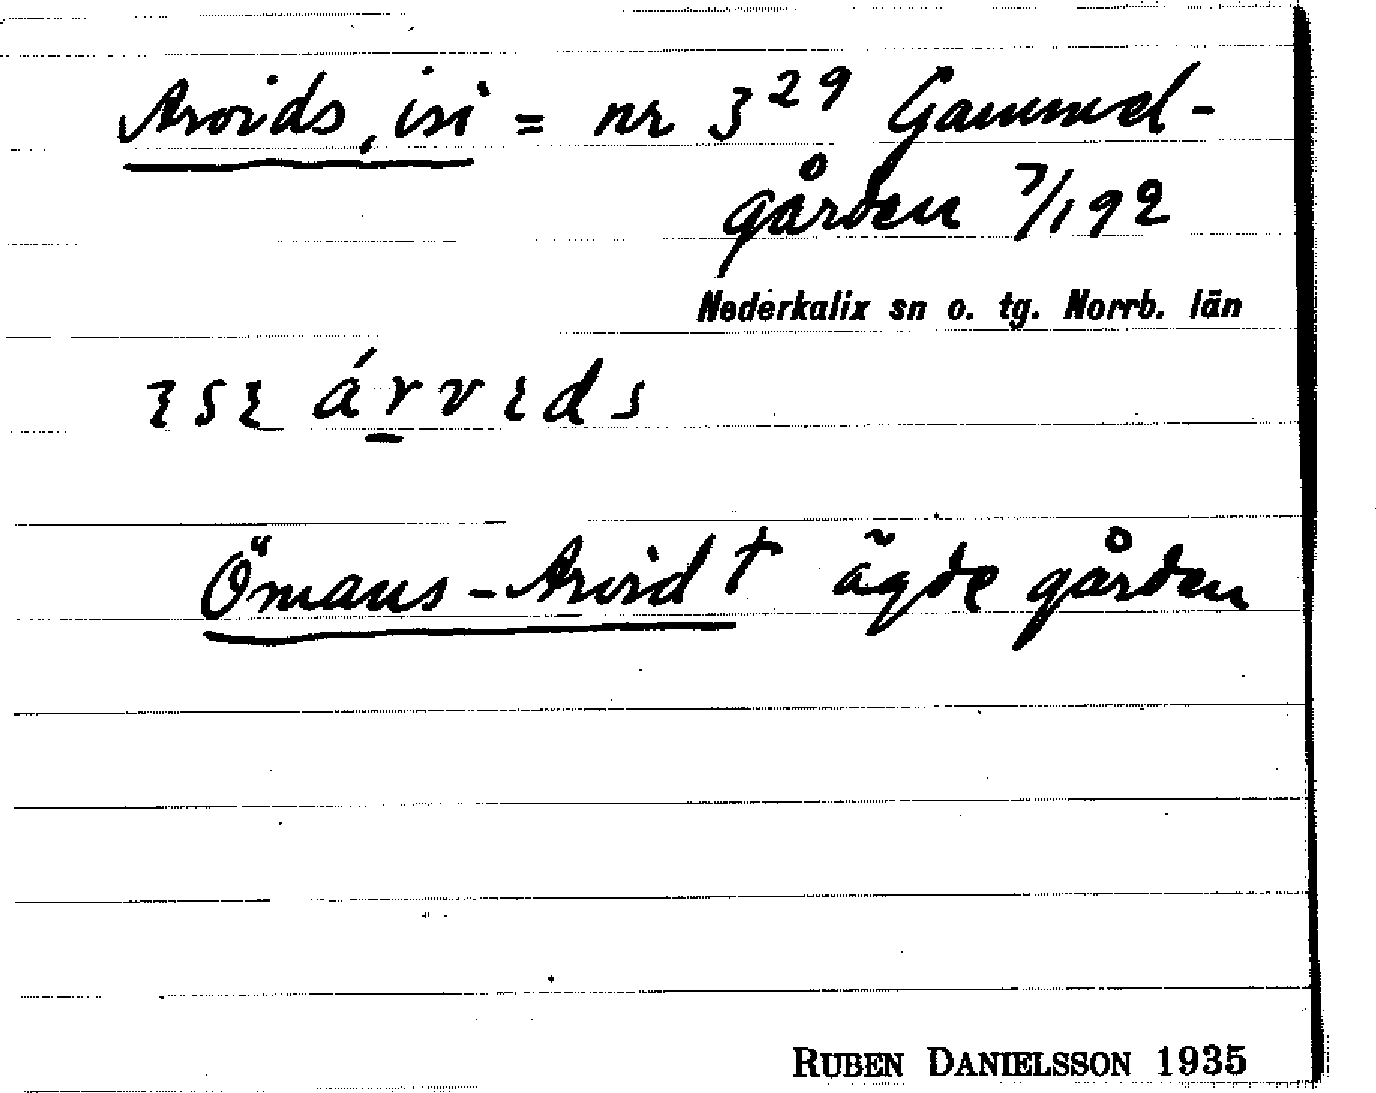 Arvids, isi = nr 3²⁹ Gammel-
gården 7/192
Nederkalix sn o. tg. Norrb. län
ɩsɩ árvɩds
Ömans-Arvid † ägde gården
RUBEN DANIELSSON 1935